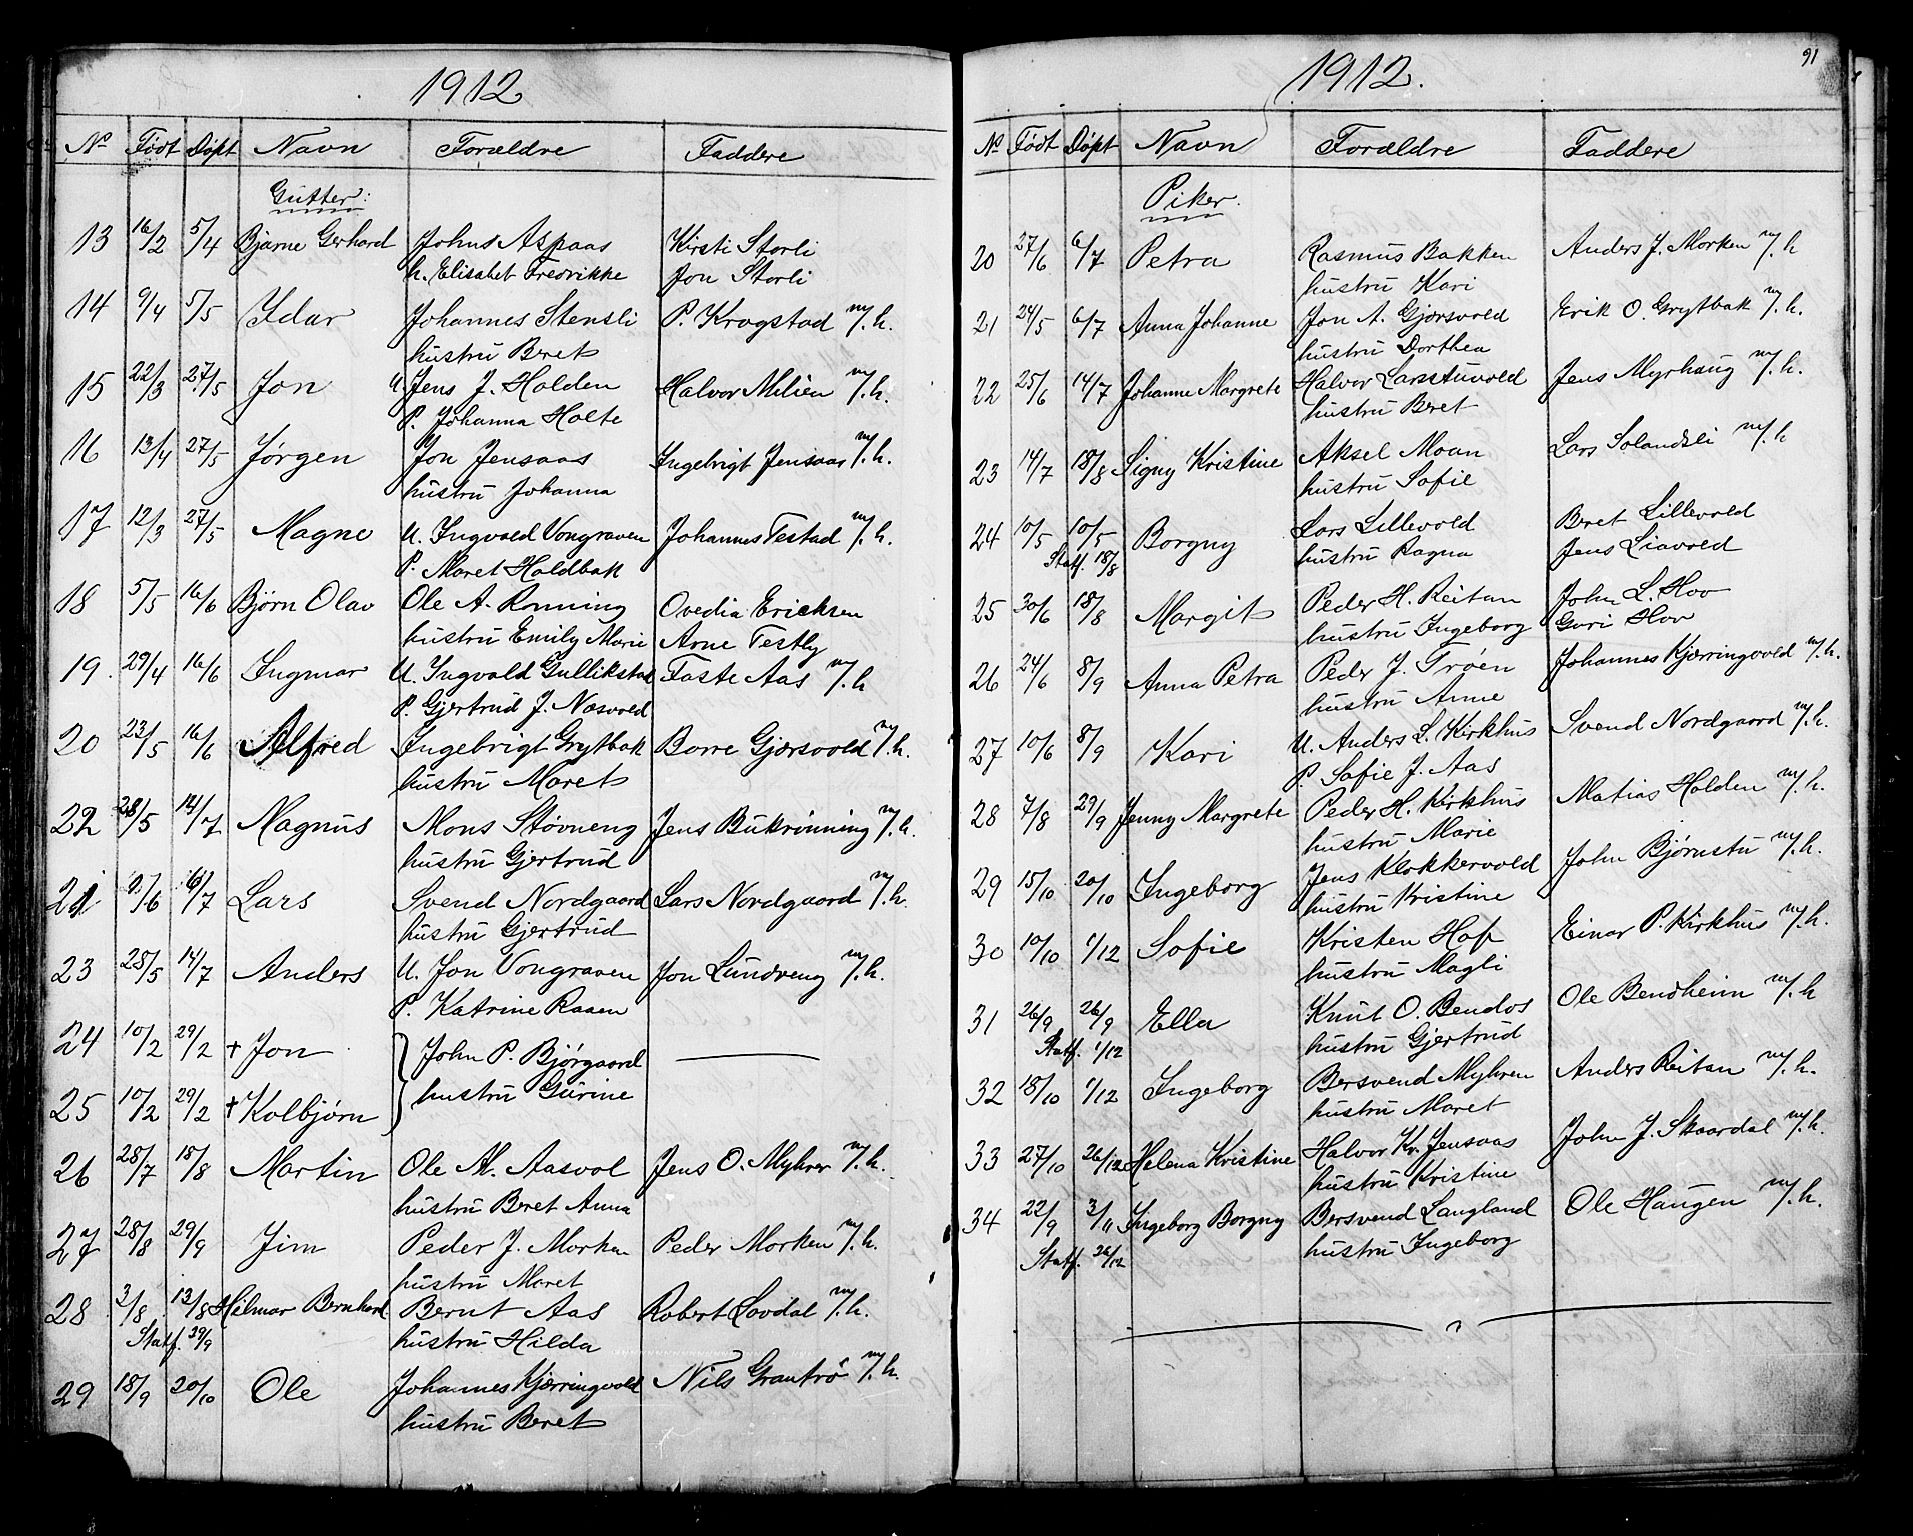 1912
No Født Døpt Navn Forældre Faddere
Gutter:
13 16/2 5/4 Bjarne Gerhard Johns Aspaas Kirsti Storli
h. Elisabet Fredrikke Jon Storli
14 9/4 5/5 Idar Johannes Stensli P. Krogstad m/h.
hustru Beret
15 22/3 27/5 Jon U. Jens J. Holden Halvor Milien m/h.
P. Johanna Holte
16 13/4 27/5 Jørgen Jon Jensaas Ingebrigt Jensaas m/h.
hustru Johanna
17 12/3 27/5 Magne U. Ingvald Vongraven Johannes Testad m/h.
P. Maret Holdbak
18 5/5 16/6 Bjørn Olav Ole A. Rønning Ovedia Ericksen
hustru Emily Marie Arne Testly
19 29/4 16/6 Ingmar U. Ingvald Gullikstad Faste Aas m/h
P. Gjertrud J. Næsvold
20 23/5 16/6 Alfred Ingebrigt Grytbak Borre Gjørsvold m/h.
hustru Maret
22 28/5 14/7 Magnus Mons Støvneng Jens Bukrønning m/h.
hustru Gjertrud
21 9/6 6/7 Lars Svend Nordgaard Lars Nordgaard m/h.
hustru Gjertrud
23 28/5 14/7 Anders U. Jon Vongraven Jon Lundveng m/h.
P. Katrine Raaen
24 10/2 29/2 + Jon John P. Bjørgaard
25 10/2 29/2 + Kolbjørn hustru Gurine
26 28/7 18/8 Martin Ole M. Aasvol Jens O. Myhrer m/h.
hustru Beret Anna
27 28/8 29/9 Jim Peder J. Morken Peder Morken m/h.
hustru Maret
28 3/8 13/8 Hilmar Bernhard Bernt Aas Robert Lovdal m/h.
Statf. 29/9 hustru Hilda
29 18/9 20/10 Ole Johannes Kjærringvold Nils Grantrø m/h.
hustru Beret
91
1912.
No Født Døpt Navn Forældre Faddere
Piker.
20 27/6 6/7 Petra Rasmus Bakken Anders J. Morken m/h
hustru Kari
21 24/5 6/7 Anna Johanne Jon A. Gjørsvold Erik O. Grytbak m/h.
hustru Dorthea
22 25/6 14/7 Johanne Margrete Halvor Larsstuvold Jens Myrhaug m/h.
hustru Beret
23 14/7 18/8 Signy Kristine Aksel Moan Lars Solandsli m/h
hustru Sofie
24 10/5 10/5 Borgny Lars Lillevold Beret Lillevold
Statf. 18/8 hustru Ragna Jens Liavold
25 30/6 18/8 Margit Peder H. Reitan John L. Hov
hustru Ingeborg Guri Hov
26 24/6 8/9 Anna Petra Peder J. Trøen Johannes Kjærringvold m/h.
hustru Anne
27 10/6 8/9 Kari U. Anders L. Kirkhus Svend Nordgaard m/h.
P. Sofie J. Aas
28 7/8 29/9 Jenny Margrete Peder H. Kirkhus Matias Holden m/h.
hustru Marie
29 15/10 20/10 Ingeborg Jens Klokkervold John Bjørnstu m/h.
hustru Kristine
30 10/10 1/12 Sofie Kristen Hof Einar P. Kirkhus m/h.
hustru Magli
31 26/9 26/9 Ella Knut O. Bendos Ole Bendheim m/h
Statf. 1/12 hustru Gjertrud
32 18/10 1/12 Ingeborg Bersvend Myhren Anders Reitan m/h.
hustru Maret
33 27/10 26/12 Helena Kristine Halvor Kr. Jensaas John J. Skaardal m/h.
hustru Kristine
34 22/9 3/11 Ingeborg Borgny Bersvend Langland Ole Haugen m/h.
Statf. 26/12 hustru Ingeborg